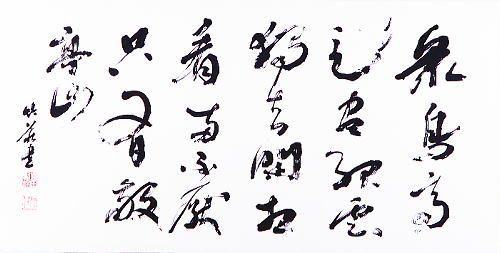 衆鳥高
飛盡孤雲
獨去閑相
看兩不厭
只有敬
亭山
書